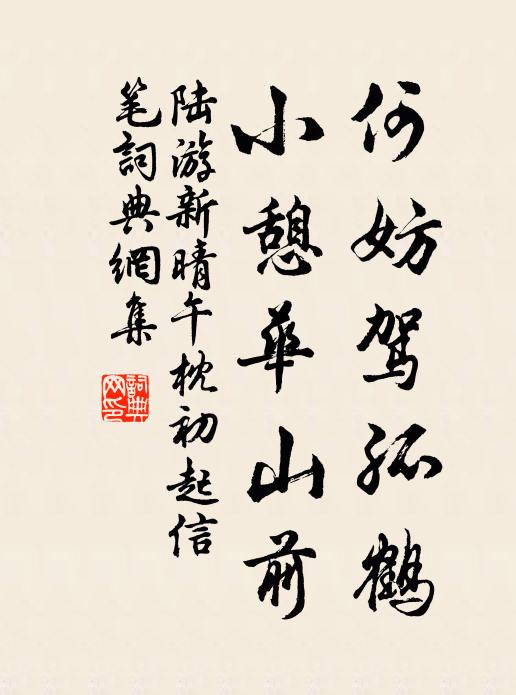 何妨驾孤鹤
小憩華山前
陆游新晴午枕初起信
笔詞典網集
詞典
网印